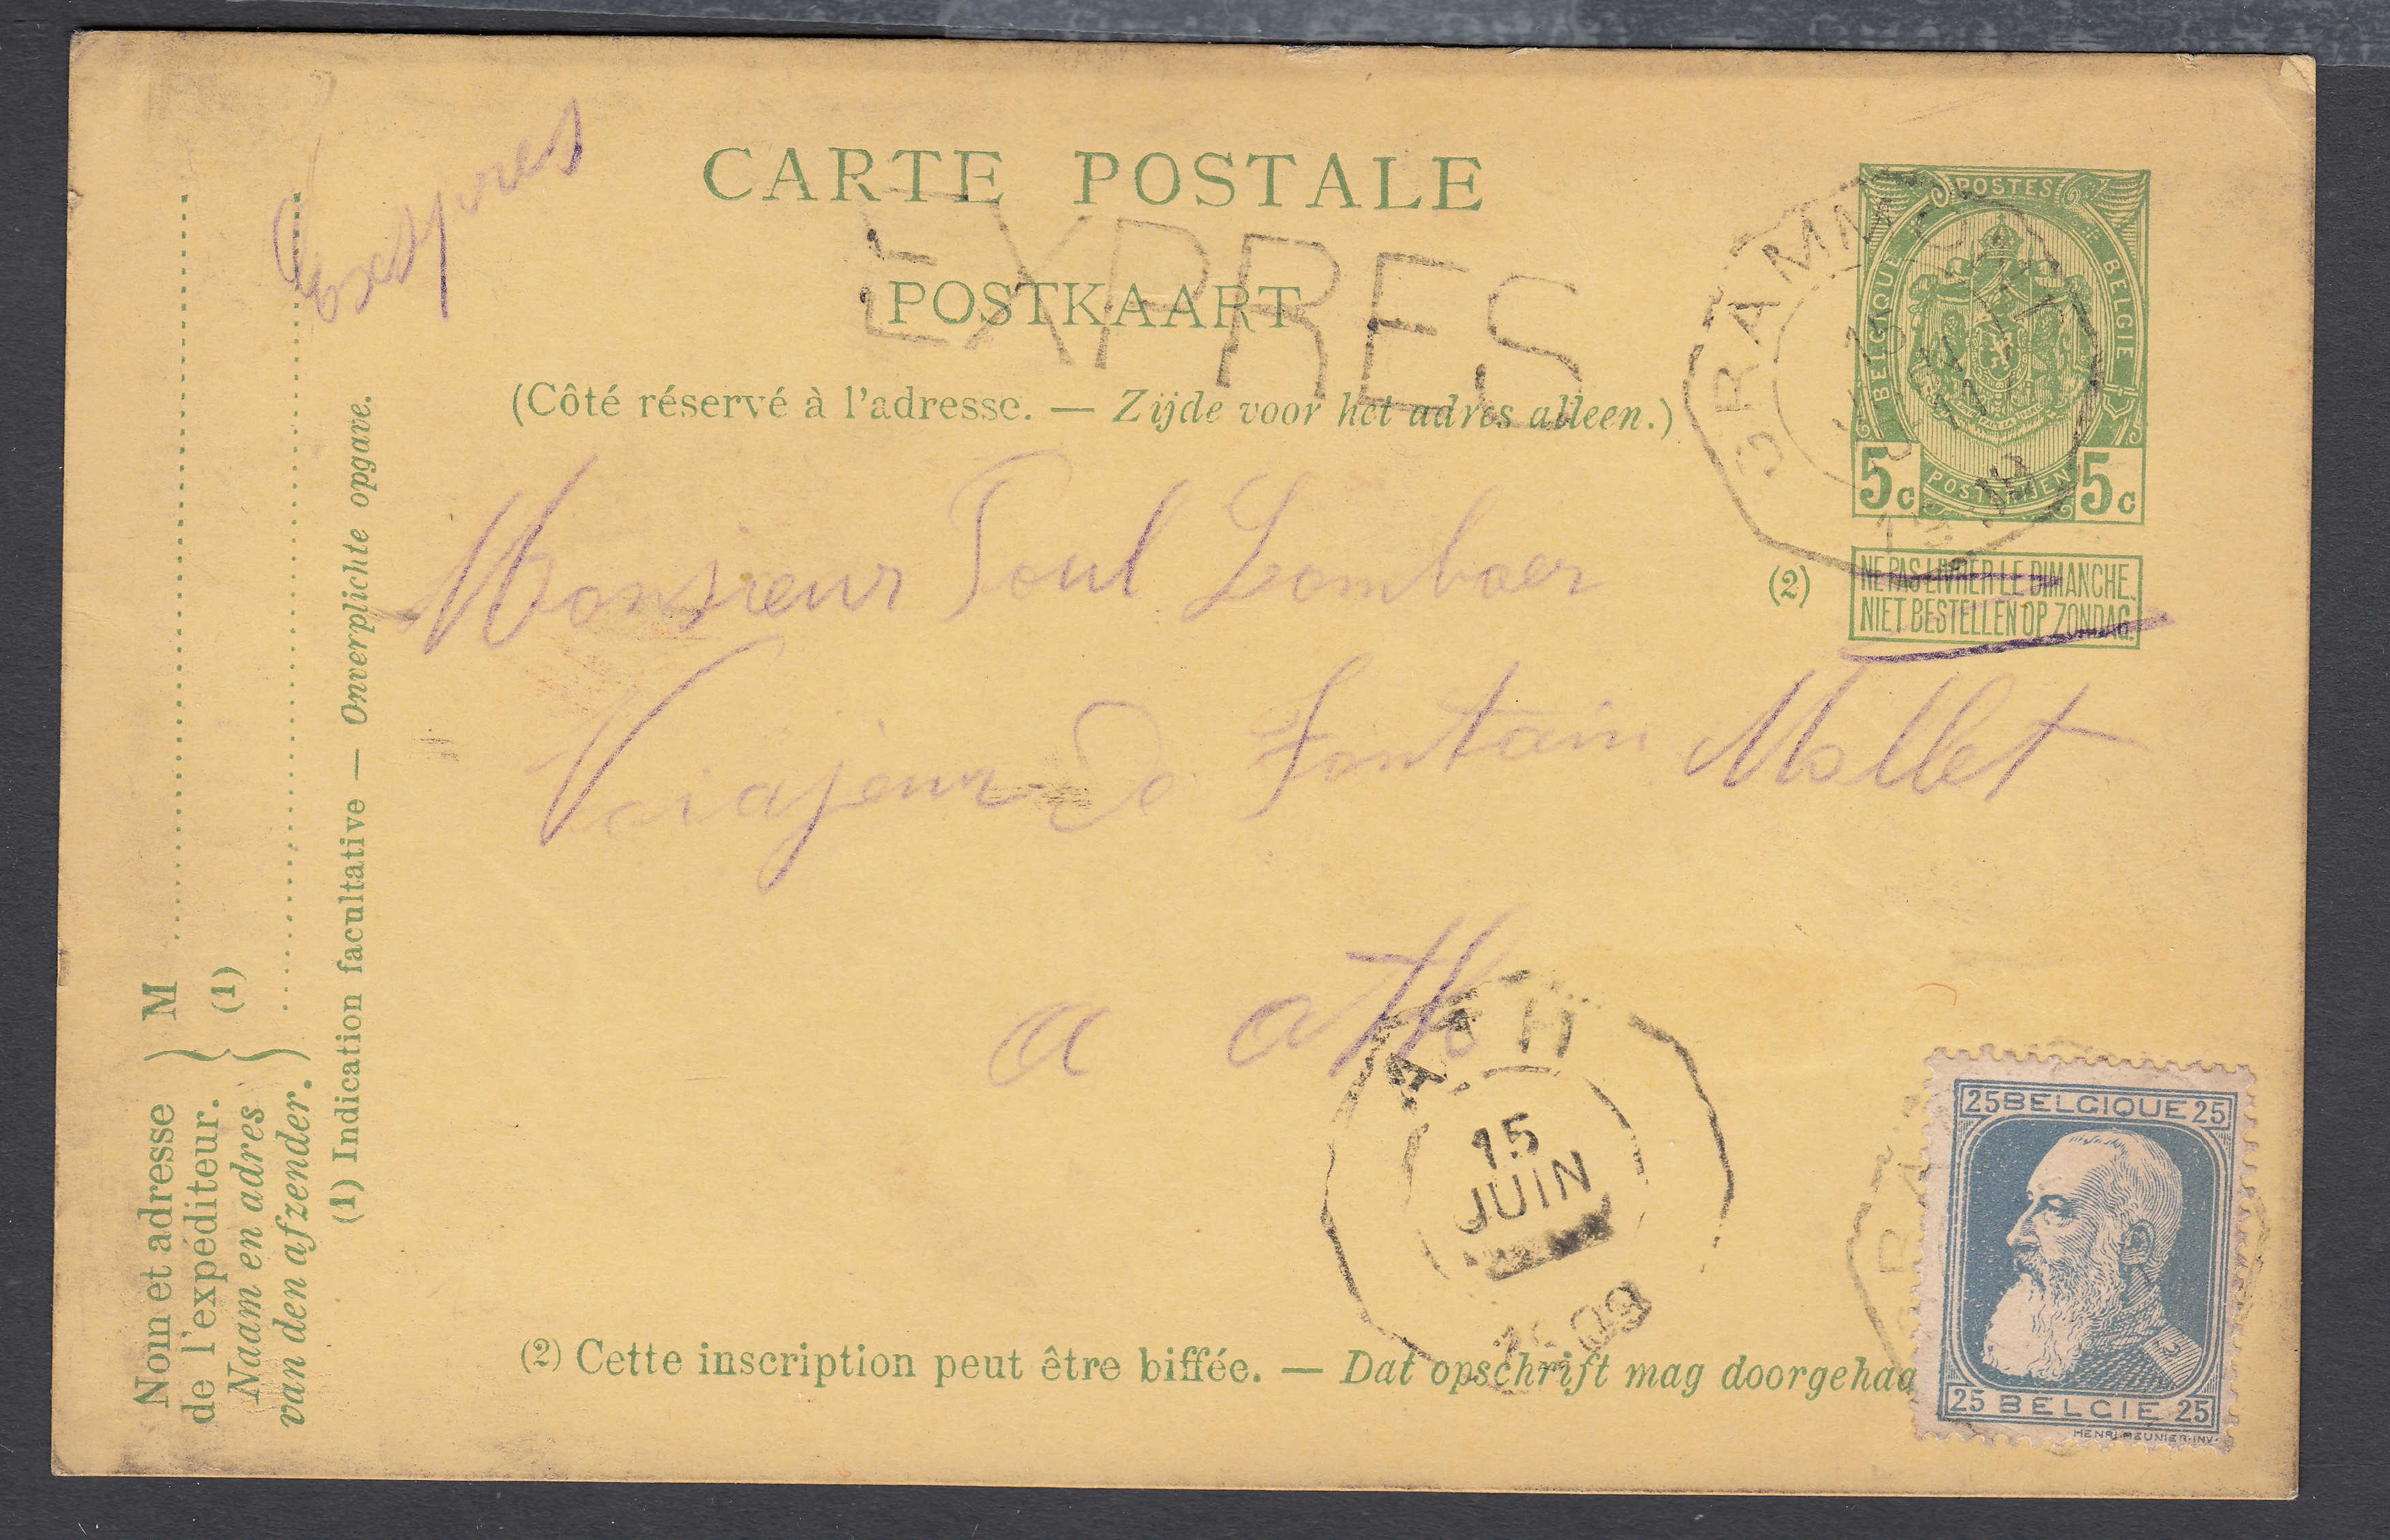 CARTE POSTALE
POSTKAART
EXPRES
(Côté réservé à l'adresse. — Zijde voor het adres alleen.)
Exspres
POSTES
BELGIQUE
BELGIE
POSTERIJEN
5c 5c
(2)
NE PAS LIVRER LE DIMANCHE.
NIET BESTELLEN OP ZONDAG.
Monsieur Poul Lombaer
Voiajeur De Fontain Mollet
a ath
ATH
15
JUIN
25 BELGIQUE 25
25 BELGIE 25
HENRI MEUNIER·INV·
(2) Cette inscription peut être biffée. — Dat opschrift mag doorgehaa
M
Nom et adresse
de l'expéditeur.
(1)
Naam en adres
van den afzender.
(1) Indication facultative — Onverplichte opgave.